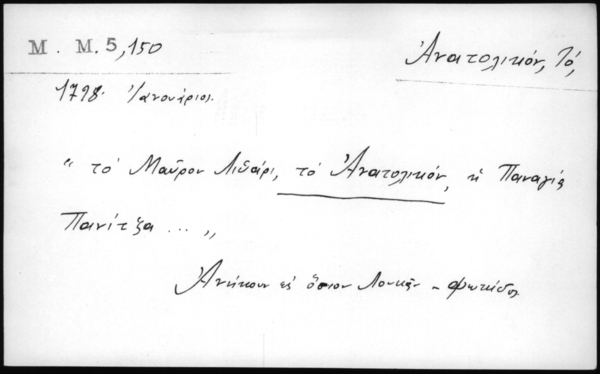 Μ. Μ. 5,150
Ἀνατολικόν, Τό,
1798. Ἰανουάριος.
"τό Μαῦρον Λιθάρι, τό Ἀνατολικόν, ἡ Παναγία
Πανίτζα ... "
Ἀνήκουν εἰς ὅσιον Λουκᾶν - Φωκίδος